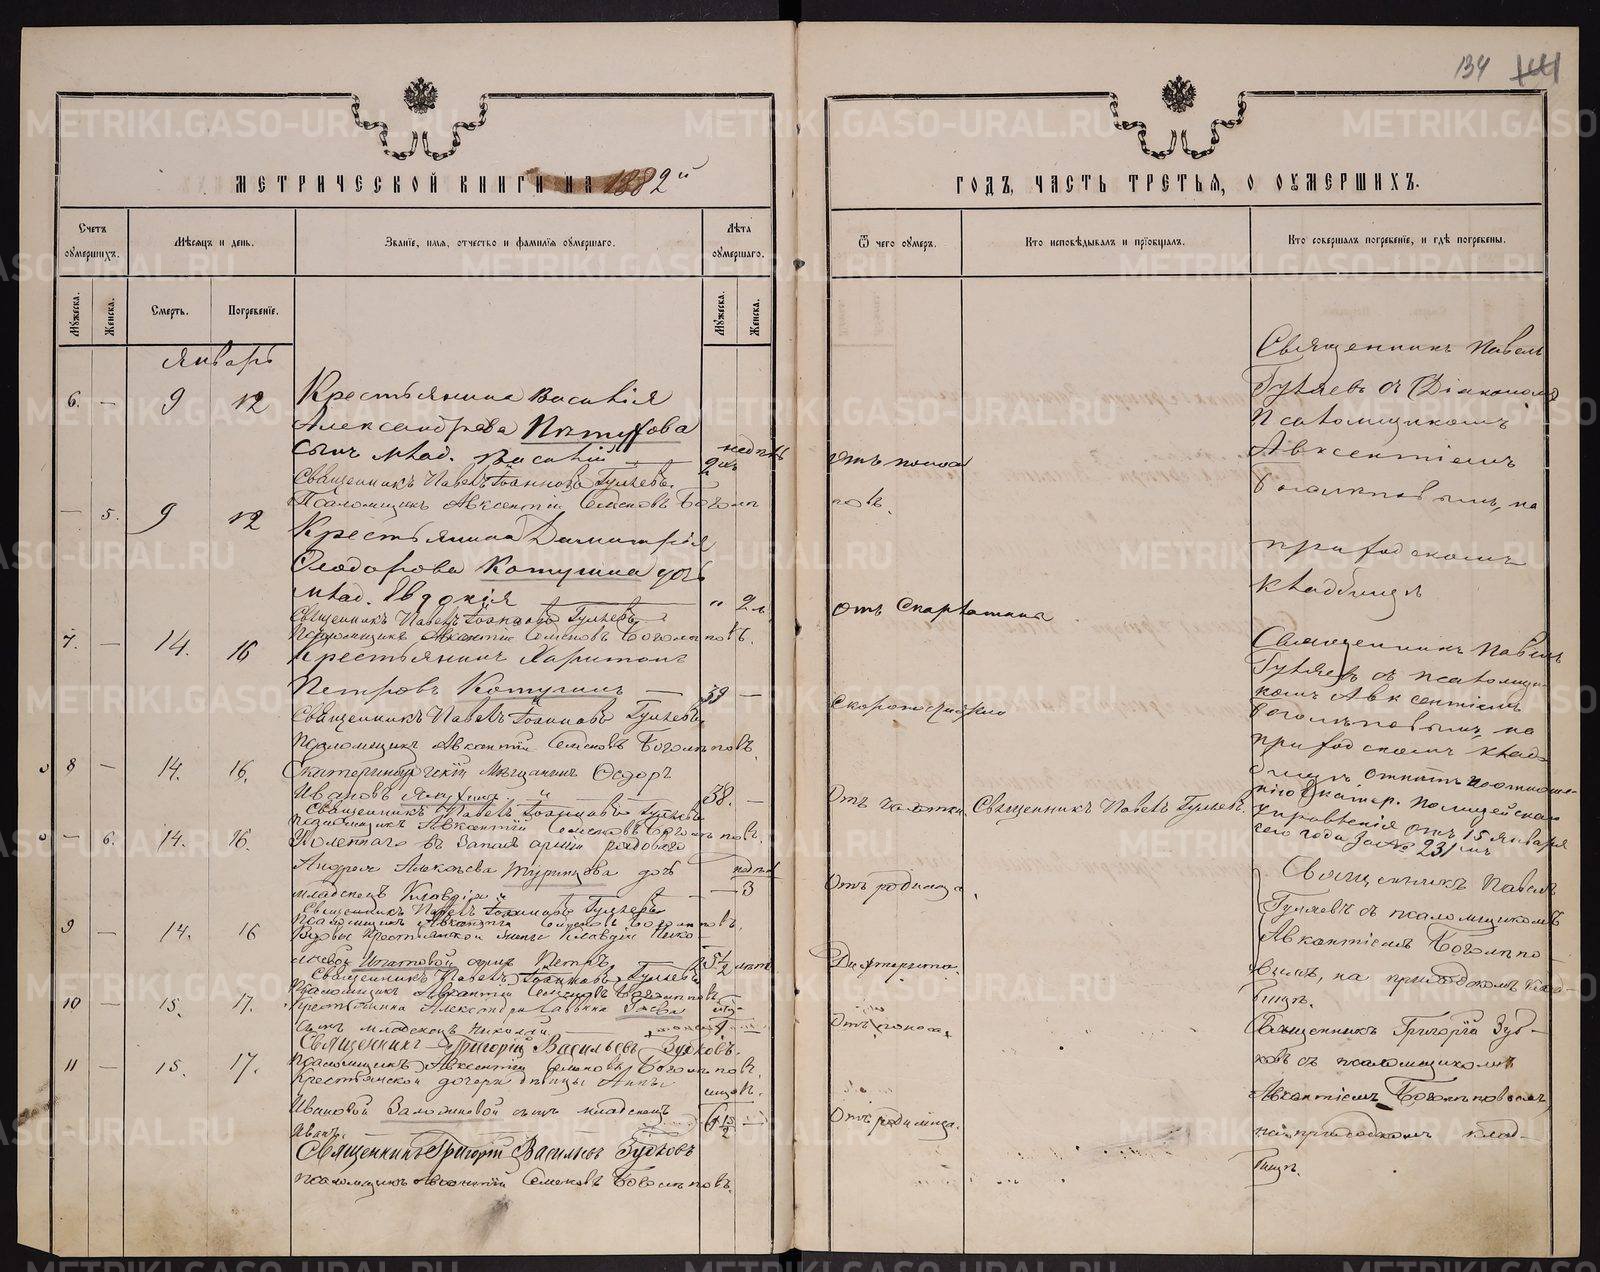 134
МЕТРИЧЕСКОЙ КНИГИ НА 1882й
Счетъ оумершихъ.
Мѣсяцъ и день.
Званіе, имя, отчество и фамилія оумершаго.
Лѣта оумершаго.
Мужеска.
Женска.
Смерть.
Погребеніе.
Мужеска.
Женска.
Январь
6. — 9 12 Крестьянина Василія
Александрова Пѣтухова
сынъ млад. Василій — 2
Священникъ Павелъ Іоанновъ Гуляевъ.
Псаломщикъ Авксентій Семеновъ Боголѣповъ.
— 5. 9 12 Крестьянина Димитрія
Ѳеодорова Котугина дочь
млад. Евдокія — " 2 л
Священникъ Павелъ Іоанновъ Гуляевъ
Псаломщикъ Авксентій Семеновъ Боголѣповъ.
7. — 14. 16 Крестьянинъ Харитонъ
Петровъ Котугинъ — 39 —
Священникъ Павелъ Іоанновъ Гуляевъ
Псаломщикъ Авксентій Семеновъ Боголѣповъ.
8 — 14. 16. Екатеринбургскій мѣщанинъ Ѳедоръ
Ивановъ — 38. —
Священникъ Павелъ Іоанновъ Гуляевъ
Псаломщикъ Авксентій Семеновъ Боголѣповъ.
— 6. 14. 16. Уволеннаго въ запасъ арміи рядового
Андрея Алексѣева Туринцова дочь
младенецъ Клавдія — 3
Священникъ Павелъ Іоанновъ Гуляевъ
Псаломщикъ Авксентій Семеновъ Боголѣповъ.
9 — 14. 16 Вдовы крестьянской жены Клавдіи
Ипатовой сынъ Петръ, 5½ лѣтъ
Священникъ Павелъ Іоанновъ Гуляевъ
Псаломщикъ Авксентій Семеновъ Боголѣповъ.
10 — 15. 17. Крестьянина Александра Саввина Гаева
сынъ младенецъ Николай
Священникъ Григорій Васильевъ Зубковъ.
Псаломщикъ Авксентій Семеновъ Боголѣповъ.
11 — 15. 17. Крестьянской дочери дѣвицы Анны
Ивановой сынъ младенецъ
Иванъ.
Священникъ Григорій Васильевъ Зубковъ
Псаломщикъ Авксентій Семеновъ Боголѣповъ.
ГОДЪ, ЧАСТЬ ТРЕТЬЯ, О ОУМЕРШИХЪ.
Ѿ чего оумеръ.
Кто исповѣдывалъ и пріобщалъ.
Кто совершалъ погребеніе, и гдѣ погребены.
отъ поноса
отъ Скарлатины
Скоропостижно
Отъ чахотки. Священникъ Павелъ Гуляевъ.
Отъ родимца.
Дифтерита.
Отъ поноса.
Отъ родимца.
Священникъ Павелъ
Гуляевъ съ Діакономъ
Псаломщикомъ
Авксентіемъ
Боголѣповымъ, на
приходскомъ
кладбищѣ
Священникъ Павелъ
Гуляевъ съ псаломщи-
комъ Авксентіемъ
Боголѣповымъ, на
приходскомъ клад-
бищѣ
Екатер. Полицейскаго
Управленія отъ 15 Января
сего года за № 231мъ
Священникъ Павелъ
Гуляевъ съ псаломщикомъ
Авксентіемъ Боголѣпо-
вымъ, на приходскомъ клад-
бищѣ.
Священникъ Григорій Зуб-
ковъ съ псаломщикомъ
Авксентіемъ Боголѣповымъ,
на приходскомъ клад-
бищѣ.
METRIKI.GASO-URAL.RU